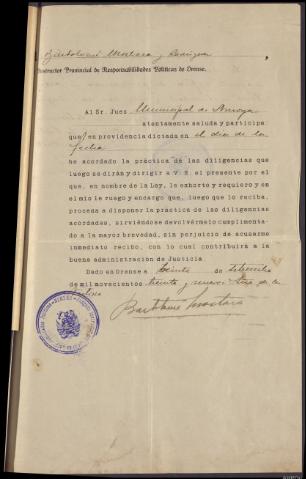 Bartolomé Mostaza y Rodríguez
Instructor Provincial de Responsabilidades Políticas de Orense.
Al Sr. Juez Municipal de
atentamente saluda y participa
que en providencia dictada en el día de la
fecha
he acordado la práctica de las diligencias que
luego se dirán y dirigir a V. S. el presente por el
que, en nombre de la Ley, le exhorto y requiero y en
el mío le ruego y encargo que, luego que lo reciba,
proceda a disponer la práctica de las diligencias
acordadas, sirviéndose devolvérmelo cumplimenta-
do a la mayor brevedad, sin perjuicio de acusarme
inmediato recibo, con lo cual contribuirá a la
buena administración de Justicia.
Dado en Orense a veinte de
de mil novecientos treinta y nueve. Año de la
Victoria
Bartolomé Mostaza